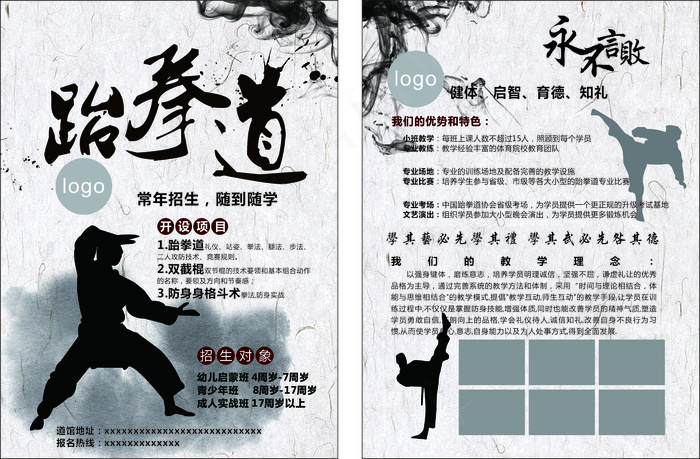 跆拳道
logo
常年招生，随到随学
开设项目
1.跆拳道礼仪、站姿、拳法、腿法、步法、
二人攻防技术、竞赛规则。
2.双截棍双节棍的技术要领和基本组合动作
的名称，要领及方向和节奏感；
3.防身身格斗术拳法,防身实战
招生对象
幼儿启蒙班 4周岁-7周岁
青少年班 8周岁-17周岁
成人实战班 17周岁以上
道馆地址：xxxxxxxxxxxxxxxxxxxxxxxxxxx
报名热线：xxxxxxxxxxxxx
永不言败
logo
健体、启智、育德、知礼
我们的优势和特色：
小班教学：每班上课人数不超过15人，照顾到每个学员
专业教练：教学经验丰富的体育院校教育团队
专业场地：专业的训练场地及配备完善的教学设施
专业比赛：培养学生参与省级、市级等各大小型的跆拳道专业比赛
专业考场：中国跆拳道协会省级考场，为学员提供一个更正规的升级考试基地
文艺演出：组织学员参加大小型晚会演出，为学员提供更多锻炼机会
學其藝必先學其禮 學其武必先㕥其德
我们的教学理念：
以强身健体，磨练意志，培养学员明理诚信，坚强不屈，谦虚礼让的优秀
品格为主导，通过完善系统的教学方法和体制，采用“时间与理论相结合，体
能与思维相结合”的教学模式,提倡“教学互动,师生互动”的教学手段,让学员在训
练过程中,不仅仅是掌握防身技能,增强体质,同时也能改善学员的精神气质,塑造
学员勇敢自信,开朗向上的品格,学会礼仪待人,诚信知礼,改善自身不良行为习
惯,从而使学员身心,意志,自身能力以及为人处事方式,得到全面发展.